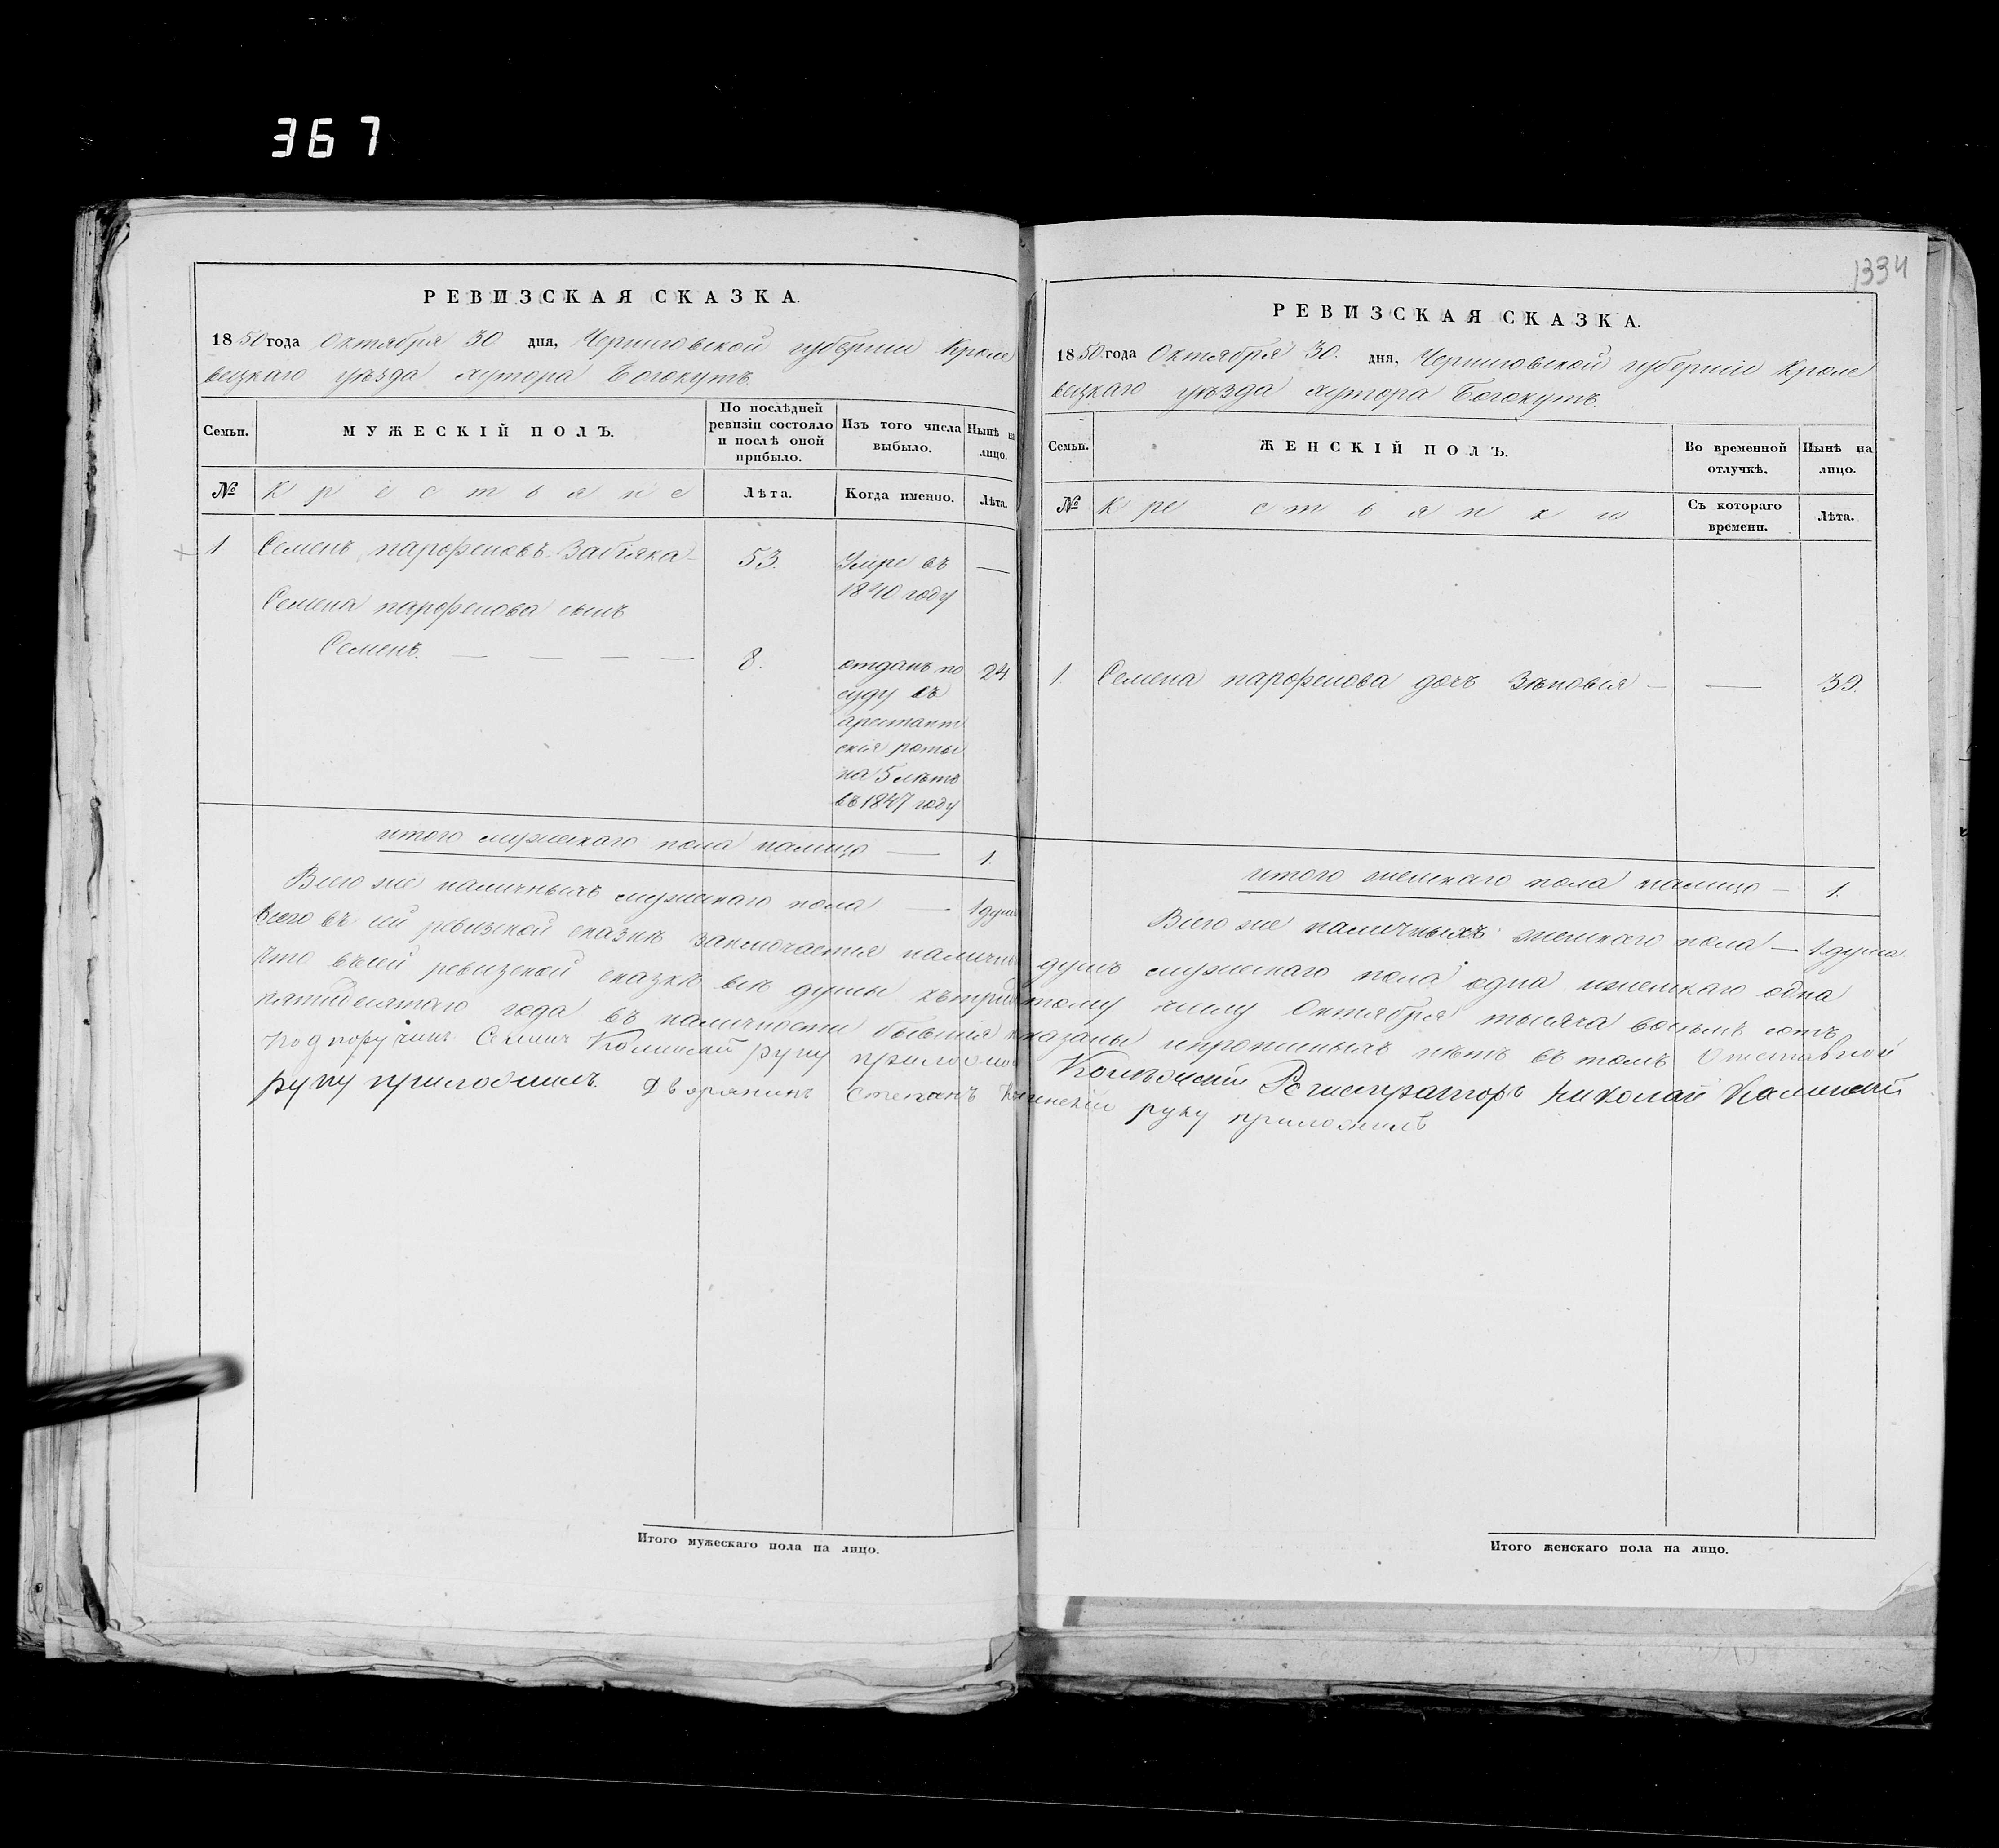 367
1334
РЕВИЗСКАЯ СКАЗКА.
1850 года Октября 30 дня, Черниговской губернии Кроле
вецкаго уѣзда хутора Богокутъ.
Семьи.
МУЖЕСКІЙ ПОЛЪ.
По послѣдней
ревизіи состояло
и послѣ оной
прибыло.
Изъ того числа
выбыло.
Нынѣ на
лицо.
№
Крестьяне
Лѣта.
Когда именно.
Лѣта.
1 Семенъ парфеновъ Забіяка 53. Умре въ —
1840 году
Семена парфенова сынъ
Семенъ. — — — — 8. отданъ по 24
суду въ
арестант
скія роты
на 5 лѣтъ
въ 1847 году
итого мужескаго пола налицо — 1.
Всего же наличныхъ мужескаго пола — 1 душа
РЕВИЗСКАЯ СКАЗКА.
1850 года Октября 30. дня, Черниговской губерніи Кроле
вецкаго уѣзда хутора Богокутъ.
Семьи.
ЖЕНСКІЙ ПОЛЪ.
Во временной
отлучкѣ.
Нынѣ на
лицо.
№
Крестьянки
Съ котораго
времени.
Лѣта.
1 Семена парфенова дочь Зѣновія — — 39.
итого женскаго пола налицо — 1.
Всего же наличныхъ женскаго пола — 1 душа
Всего въ сей ревизской сказкѣ заключается наличныхъ душъ мужескаго пола одна и женскаго одна
Что въ сей ревизской сказкѣ всѣ души къ тридцатому числу Октября тысяча восемь сотъ
пятидесятаго года въ наличности бывшія показаны и прописныхъ нѣтъ въ томъ Отставной
Подпоручикъ Руку приложилъ Колѣжскій Регистраторъ Николай
руку приложилъ. Дворянинъ Степанъ руку приложилъ
Итого мужескаго пола на лицо.
Итого женскаго пола на лицо.